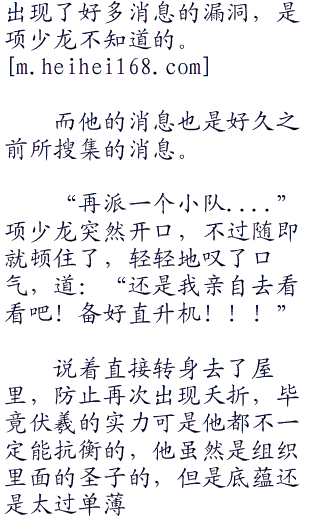 出现了好多消息的漏洞，是
项少龙不知道的。
[m.heihei168.com]
而他的消息也是好久之
前所搜集的消息。
“再派一个小队....”
项少龙突然开口，不过随即
就顿住了，轻轻地叹了口
气，道：“还是我亲自去看
看吧！备好直升机！！！”
说着直接转身去了屋
里，防止再次出现夭折，毕
竟伏羲的实力可是他都不一
定能抗衡的，他虽然是组织
里面的圣子的，但是底蕴还
是太过单薄